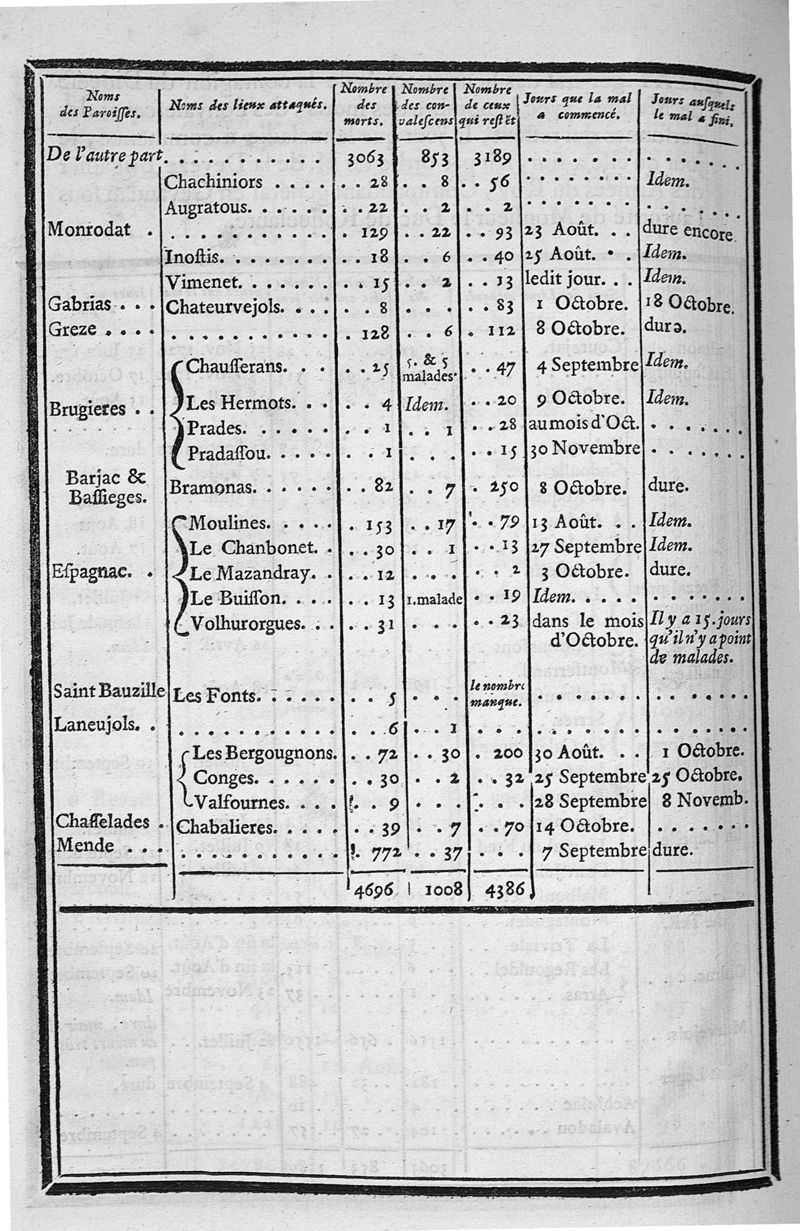 Noms des Paroisses. | Noms des lieux attaqués. | Nombre des morts. | Nombre des convalescens | Nombre de ceux qui restẽt | Jours que la mal a commencé. | Jours ausquels le mal a fini.
De l'autre part. . . . . . . . . . . 3063 853 3189 . . . . . . . . . . . .
Chachiniors . . . . . . 28 . . 8 . . 56 . . . . . . Idem.
Augratous. . . . . . . 22 . . 2 . . 2 . . . . . . . . . . . .
Monrodat . . . . . . . . . . . 129 . . 22 . . 93 23 Août. . . dure encore.
Inostis . . . . . . . 18 . . 6 . . 40 25 Août. . . Idem.
Vimenet. . . . . . . 15 . . 2 . . 13 ledit jour. . . Idem.
Gabrias . . . Chateurvejols. . . . . 8 . . . . . . 83 1 Octobre. 18 Octobre.
Greze . . . . . . . . . . . . 128 . . 6 . 112 8 Octobre. dure.
Chausserans. . . . . 25 5. & 5 malades. . . 47 4 Septembre Idem.
Brugieres . . Les Hermots. . . . . 4 Idem. . . 20 9 Octobre. Idem.
Prades. . . . . . . 1 . . 1 . . 28 au mois d'Oct. . . . . . .
Pradassou. . . . . . 1 . . . . . . 15 30 Novembre . . . . . .
Barjac & Bassieges. Bramonas. . . . . . . 82 . . 7 . 250 8 Octobre. dure.
Moulines. . . . . . 153 . . 17 . . 79 13 Août. . . Idem.
Le Chanbonet. . . . 30 . . 1 . . 13 27 Septembre Idem.
Espagnac. . Le Mazandray. . . . 12 . . . . . . 2 3 Octobre. dure.
Le Buisson. . . . . 13 1. malade . . 19 Idem. . . . . . . . . . .
Volhurorgues. . . . . 31 . . . . . . 23 dans le mois d'Octobre. Il y a 15. jours qu'il n'y a point de malades.
Saint Bauzille Les Fonts. . . . . . . 5 . . . . le nombre manque. . . . . . . . . . . . .
Laneujols. . . . . . . . . . . . 6 . . 1 . . . . . . . . . . . . . . .
Les Bergougnons. . . 72 . . 30 . 200 30 Août. . . . 1 Octobre.
Conges. . . . . . . 30 . . 2 . . 32 25 Septembre 25 Octobre.
Valfournes. . . . . 9 . . . . . . . . 28 Septembre 8 Novemb.
Chasselades . Chabalieres. . . . . . . 39 . . 7 . . 70 14 Octobre. . . . . . .
Mende . . . . . . . . . . . . 772 . . 37 . . . 7 Septembre dure.
4696 1008 4386